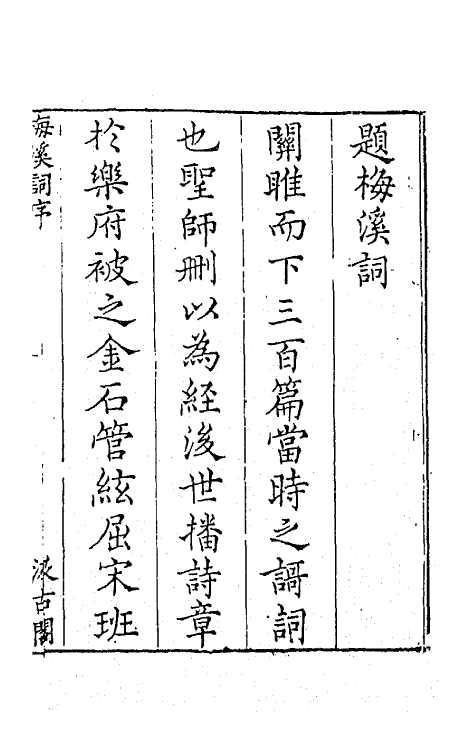 題梅溪詞
關雎而下三百篇當時之謌詞
也聖師刪以為經後世播詩章
於樂府被之金石管絃屈宋班
梅溪詞序
汲古閣